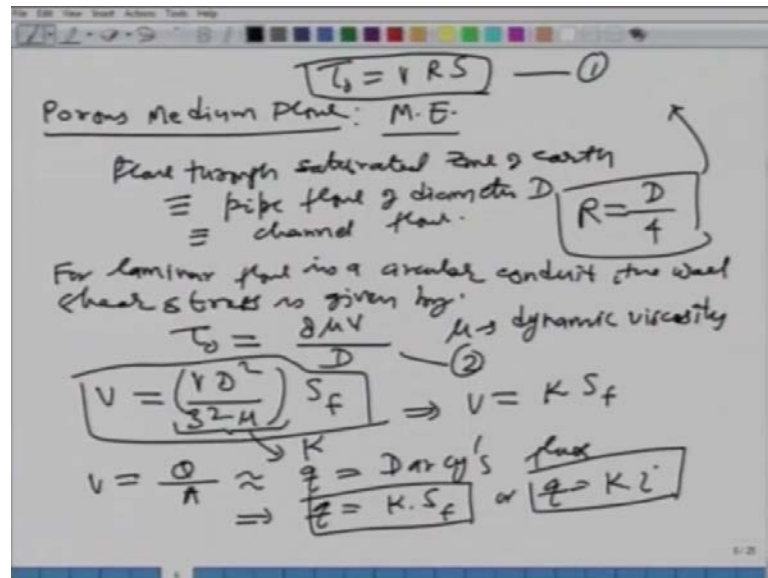 File Edit View Insert Actions Tools Help
τ₀ = γ R S — ①
Porous Medium Flow: M.E.
Flow through saturated zone of earth
≡ pipe flow of diameter D
≡ channel flow.
R = D/4
For laminar flow in a circular conduit, the wall
shear stress is given by:
τ₀ = 8μV/D — ② μ → dynamic viscosity
V = (γD²/32μ) S_f ⇒ V = K S_f
K
V = Q/A ≈ q = Darcy's flux
⇒ q = K. S_f or q = K i